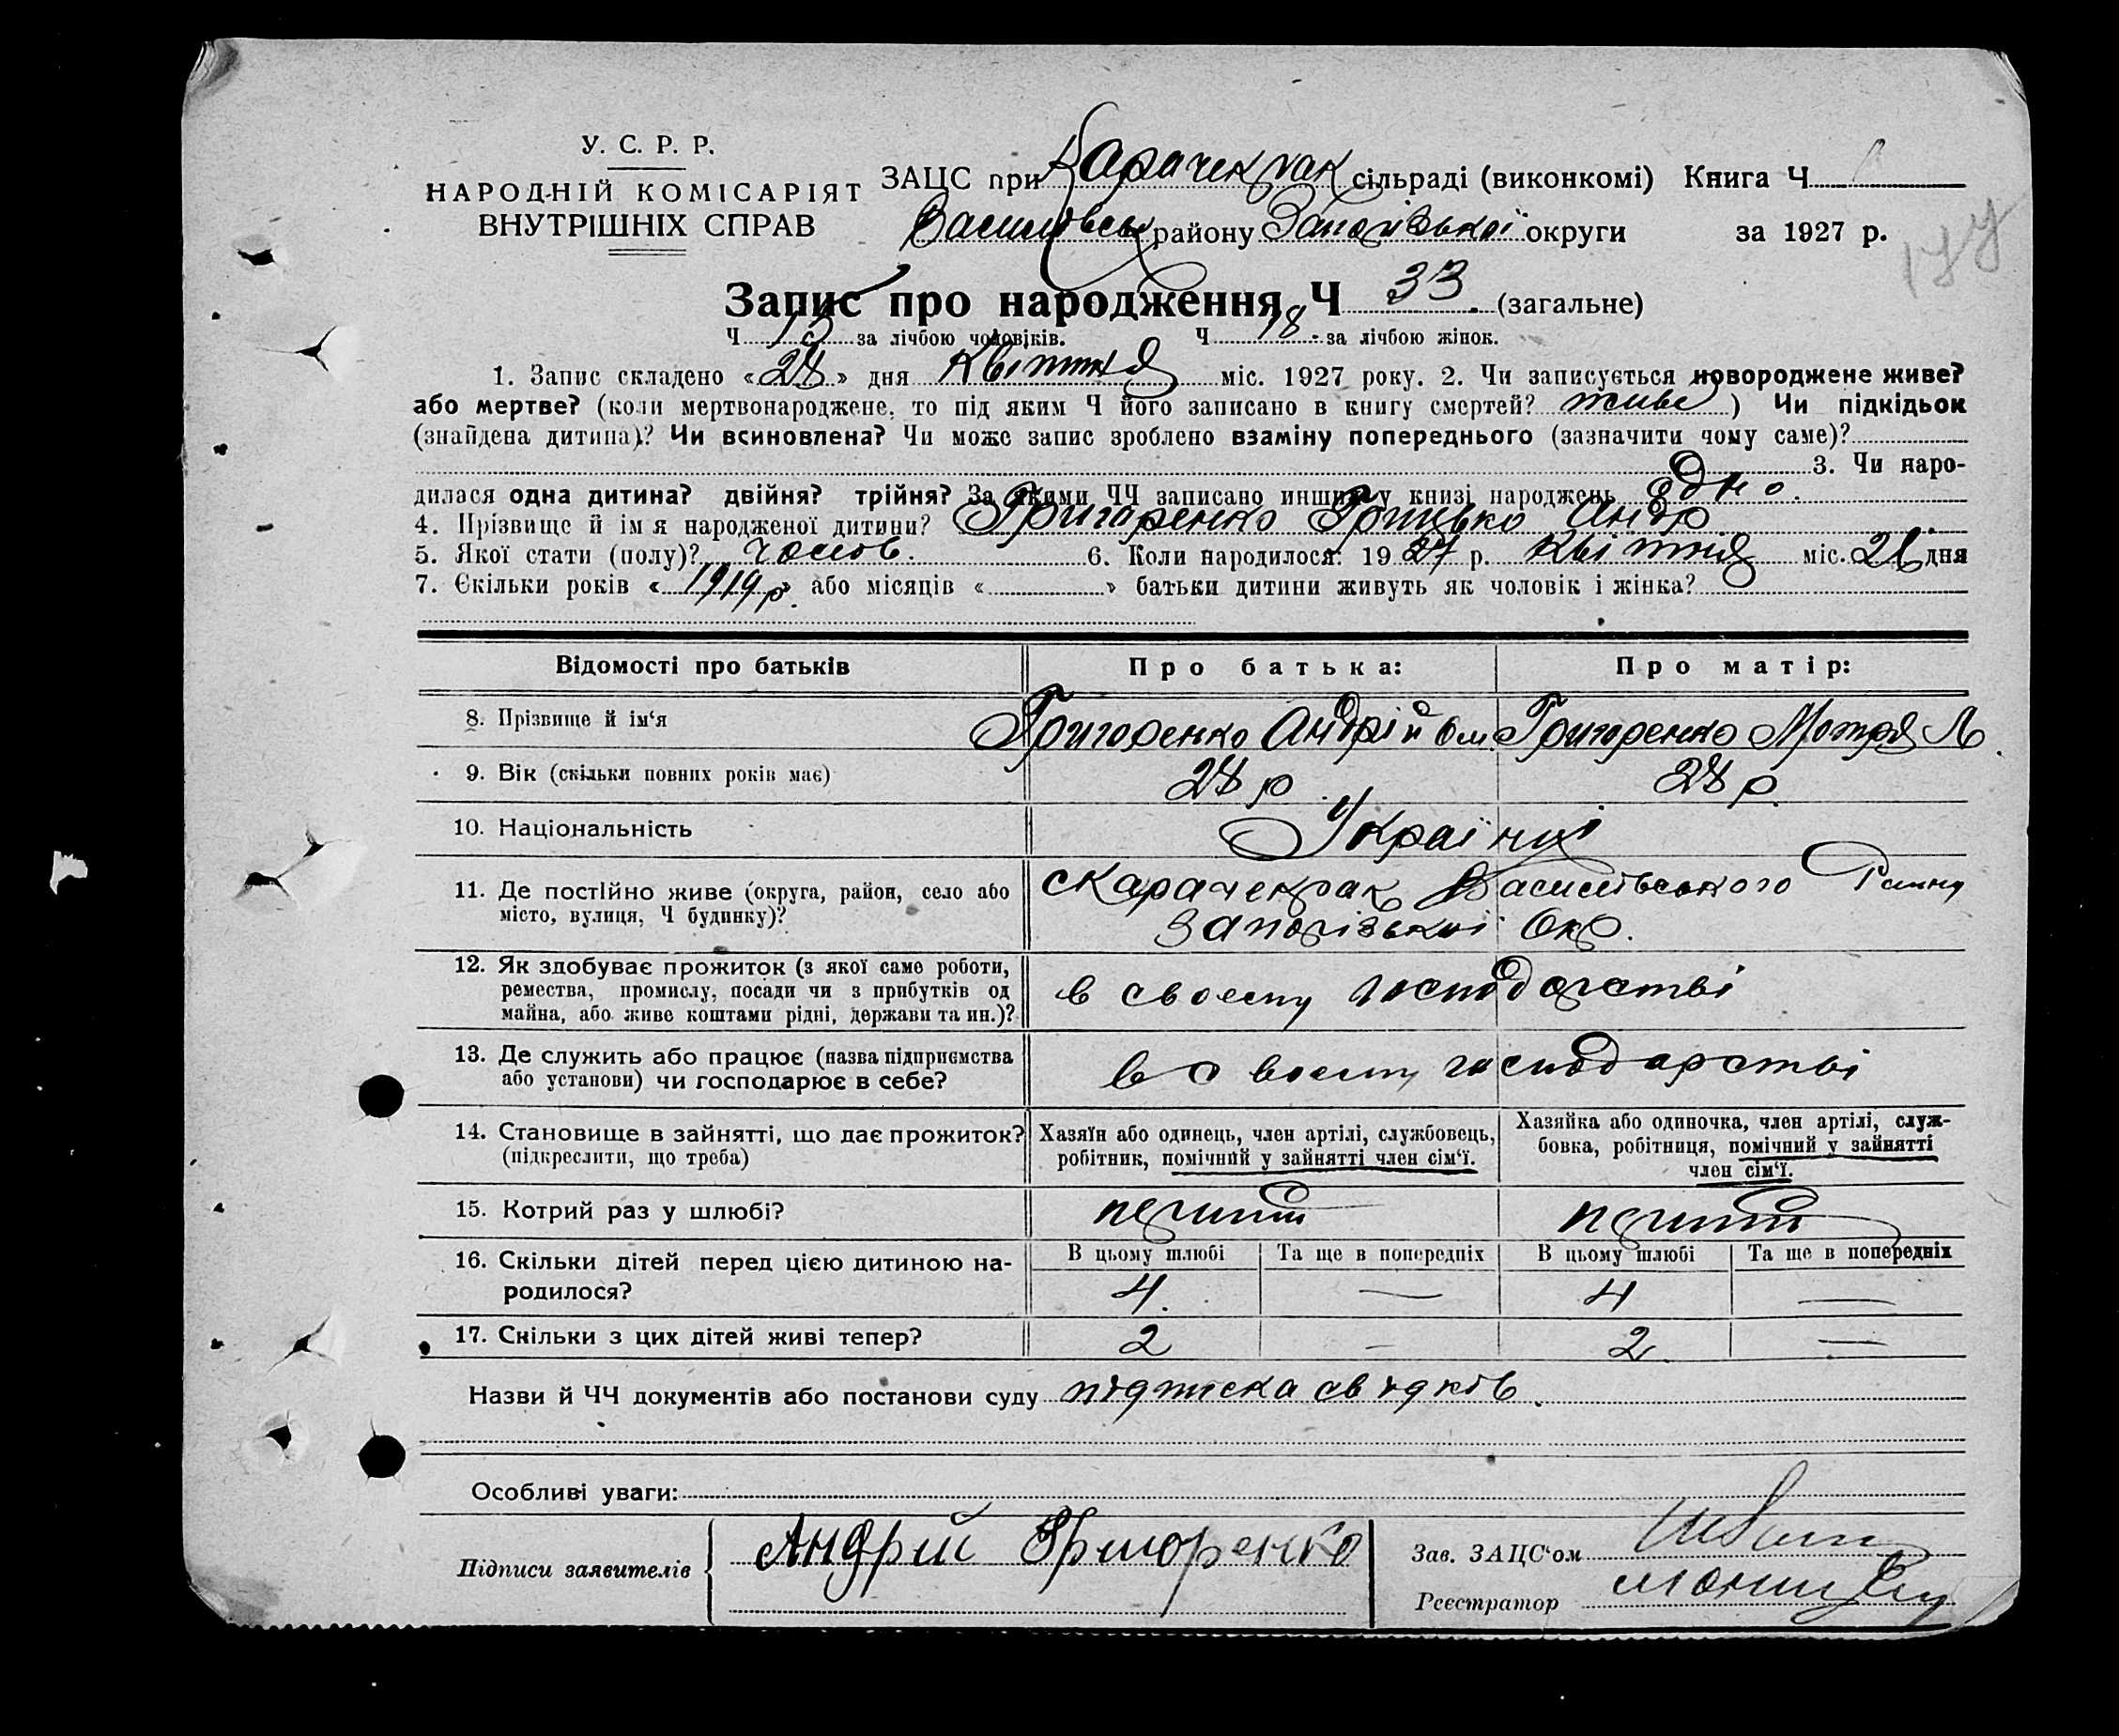 У. С. Р. Р.
НАРОДНІЙ КОМІСАРІЯТ
ВНУТРІШНІХ СПРАВ
ЗАЦС при Карачекрак сільраді (виконкомі) Книга Ч
Василівськ району Запорізької округи за 1927 р.
177
Запис про народження Ч 33 (загальне)
Ч 15 за лічбою чоловіків. Ч 18 за лічбою жінок.
1. Запис складено «28» дня Квітня міс. 1927 року. 2. Чи записується новороджене живе?
або мертве? (коли мертвонароджене, то під яким Ч його записано в книгу смертей? живе) Чи підкідьок
(знайдена дитина)? Чи всиновлена? Чи може запис зроблено взаміну попереднього (зазначити чому саме)?
3. Чи наро-
дилася одна дитина? двійня? трійня? За якими ЧЧ записано инших у книзі народжень одно.
4. Прізвище й ім я народженої дитини? Григоренко Грицько Андр
5. Якої стати (полу)? чолов. 6. Коли народилося: 1927 р. Квітня міс. 26 дня
7. Скільки років «1919 р.» або місяців « » батьки дитини живуть як чоловік і жінка?
Відомості про батьків Про батька: Про матір:
8. Прізвище й ім‘я Григоренко Андрій Ом. Григоренко Мотря Л.
9. Вік (скільки повних років має) 28 р 28 р.
10. Національність Українці
11. Де постійно живе (округа, район, село або
місто, вулиця, Ч будинку)?
с Карачекрак Василівського Району
Запорізької Окр.
12. Як здобуває прожиток (з якої саме роботи,
ремества, промислу, посади чи з прибутків од
майна, або живе коштами рідні, держави та ин.)?
в своему господарстві
13. Де служить або працює (назва підприємства
або установи) чи господарює в себе?
в своему господарстві
14. Становище в зайнятті, що дає прожиток?
(підкреслити, що треба)
Хазяїн або одинець, член артілі, службовець,
робітник, помічний у зайнятті член сім‘ї.
Хазяйка або одиночка, член артілі, служ-
бовка, робітниця, помічний у зайнятті
член сім‘ї.
15. Котрий раз у шлюбі? перший перший
16. Скільки дітей перед цією дитиною на-
родилося?
В цьому шлюбі Та ще в попередніх В цьому шлюбі Та ще в попередніх
4. — 4 —
17. Скільки з цих дітей живі тепер? 2 — 2 —
Назви й ЧЧ документів або постанови суду підписка свідків
Особливі уваги:
Підписи заявителів Андрій Григоренко
Зав. ЗАЦС‘ом
Реєстратор